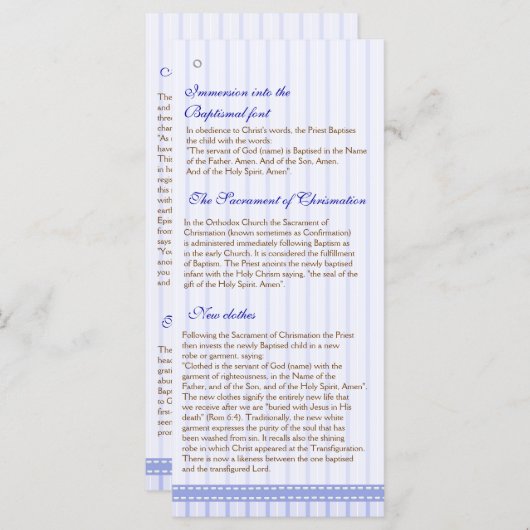 Immersion into the
Baptismal font
In obedience to Christ's words, the Priest Baptises
the child with the words:
"The servant of God (name) is Baptised in the Name
of the Father. Amen. And of the Son, Amen.
And of the Holy Spirit, Amen".
The Sacrament of Chrismation
In the Orthodox Church the Sacrament of
Chrismation (known sometimes as Confirmation)
is administered immediately following Baptism as
in the early Church. It is considered the fulfillment
of Baptism. The Priest anoints the newly baptised
infant with the Holy Chrism saying, "the seal of the
gift of the Holy Spirit. Amen".
New clothes
Following the Sacrament of Chrismation the Priest
then invests the newly Baptised child in a new
robe or garment, saying:
"Clothed is the servant of God (name) with the
garment of righteousness, in the Name of the
Father, and of the Son, and of the Holy Spirit, Amen".
The new clothes signify the entirely new life that
we receive after we are "buried with Jesus in His
death" (Rom 6:4). Traditionally, the new white
garment expresses the purity of the soul that has
been washed from sin. It recalls also the shining
robe in which Christ appeared at the Transfiguration.
There is now a likeness between the one baptised
and the transfigured Lord.
The
and
three
"As
have
This
in he
regis
this
with
earth
Epis
from
says
"You
anoi
you
and
The
head
grati
abu
Bap
to G
first-
seen
pro